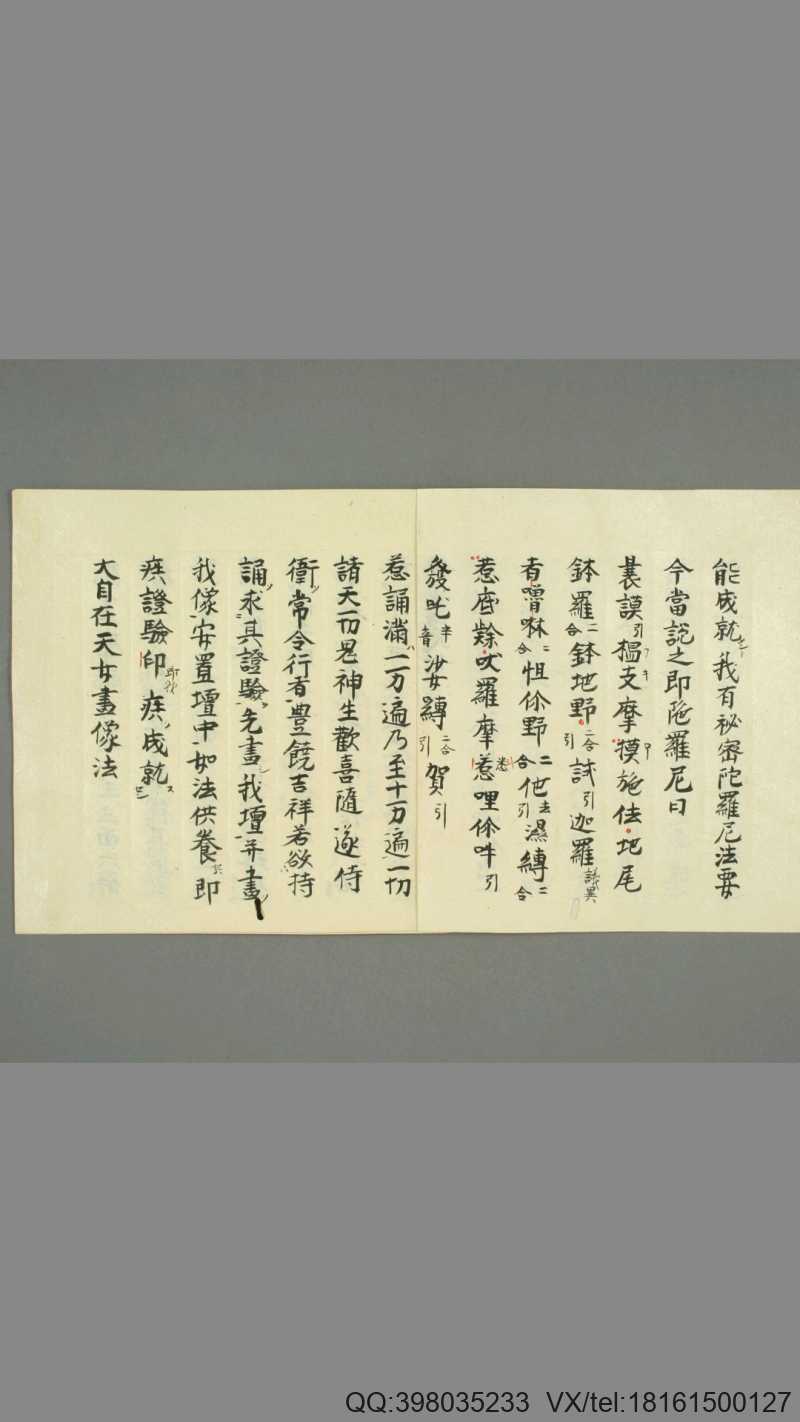 能成就我有祕密陀羅尼法要
今當説之即陁羅尼曰
曩謨引搵支摩摸施佉地尾
鉢羅二合鉢地野二合引試引迦羅
者嚕啉二合怛你野二合他去引濕縛二合
惹底 吠羅摩惹哩你吽引
發吒半音娑縛二合引賀引
惹誦滿一二万遍乃至十万遍一切
諸天一切鬼神生歡喜隨遂侍
衛常令行者豊饒吉祥若欲持
誦求其證驗先畫我壇并畫
我像安置壇中如法供養即
疾證驗印疾成就
大自在天女畫像法
QQ:398035233 VX/tel:18161500127